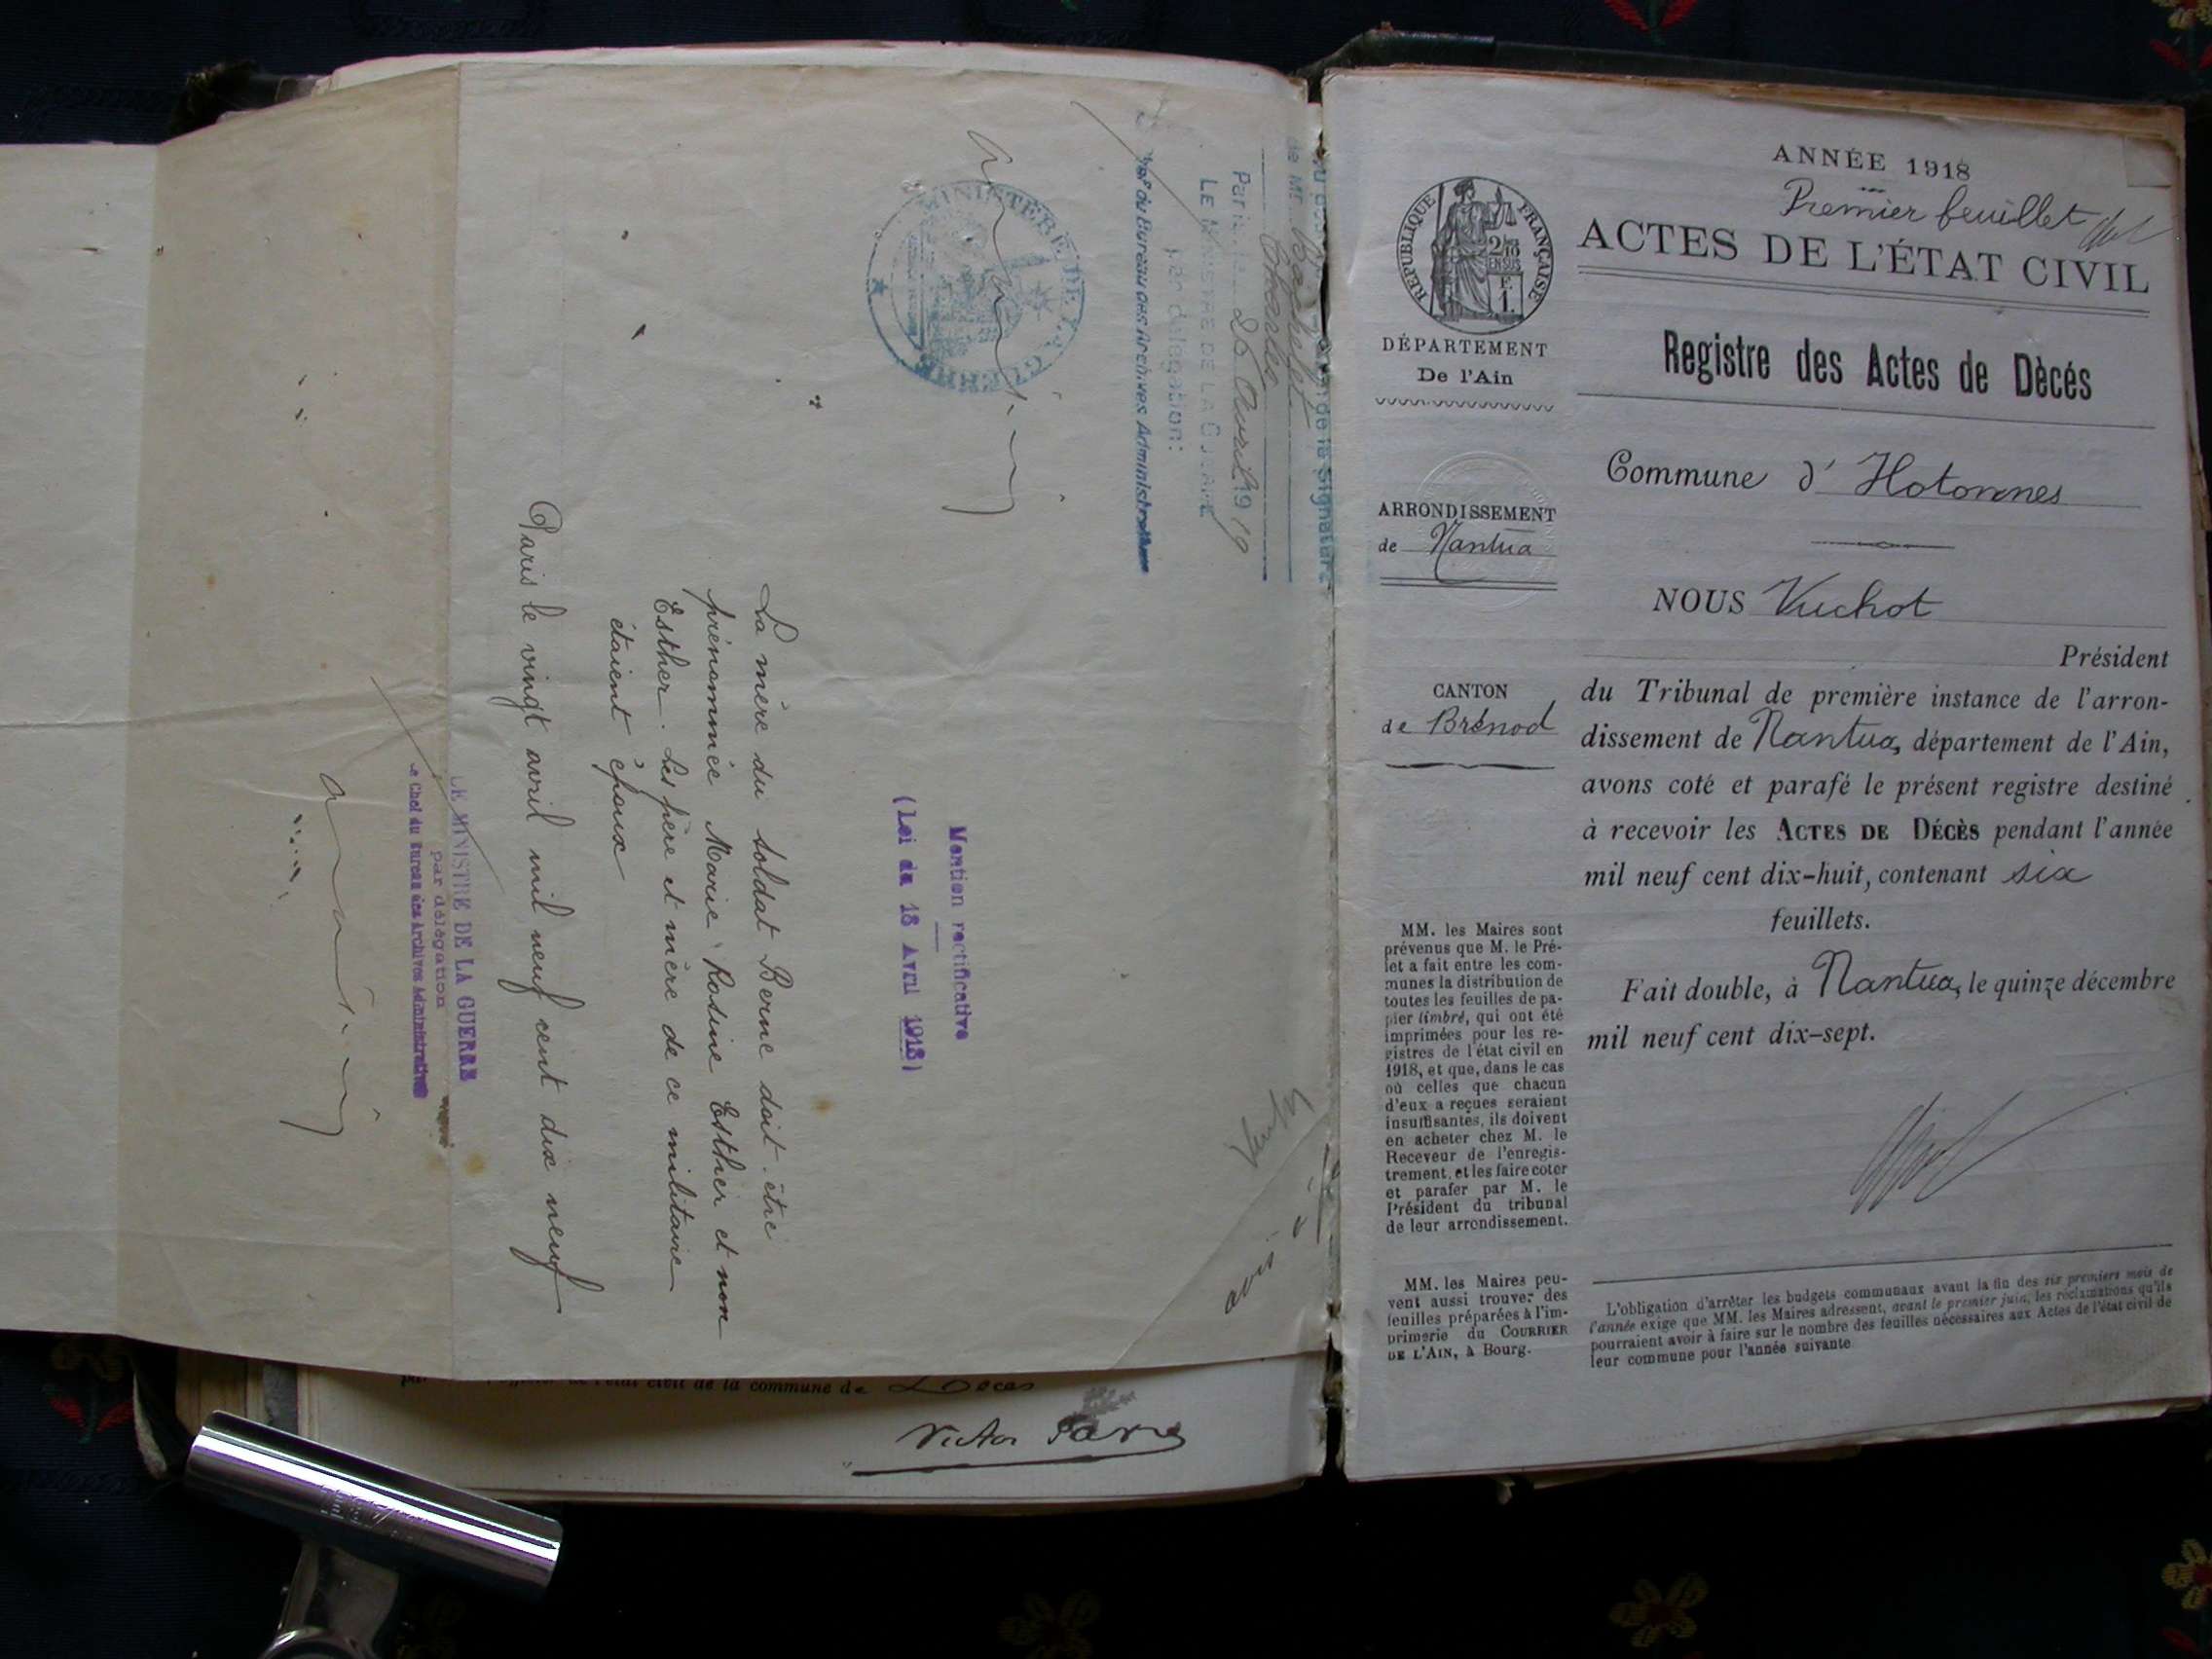 de la signature
de Mr Bachelet
Charles
Paris, le 25 Avril 1919
LE MINISTRE DE LA GUERRE
par délégation:
du Bureau des Archives Administratives
MINISTÈRE DE LA GUERRE
Mention rectificative
(Loi du 18 Avril 1918)
La mère du soldat Berne doit-être
prénommée Marie Rosine Esther et non
Esther. Les père et mère de ce militaire
étaient époux
Paris le vingt avril mil neuf cent dix neuf
LE MINISTRE DE LA GUERRE
par délégation
Le Chef du Bureau des Archives Administratives
avis
l'état civil de la commune de
Victor
ANNÉE 1918
Premier feuillet
ACTES DE L'ÉTAT CIVIL
RÉPUBLIQUE FRANÇAISE
2/10
EN SUS
F.
1.
DÉPARTEMENT
De l'Ain
ARRONDISSEMENT
de Nantua
CANTON
de Brénod
MM. les Maires sont
prévenus que M. le Pré-
fet a fait entre les com-
munes la distribution de
toutes les feuilles de pa-
pier timbré, qui ont été
imprimées pour les re-
gistres de l'état civil en
1918, et que, dans le cas
où celles que chacun
d'eux a reçues seraient
insuffisantes, ils doivent
en acheter chez M. le
Receveur de l'enregis-
trement, et les faire coter
et parafer par M. le
Président du tribunal
de leur arrondissement.
MM. les Maires peu-
vent aussi trouver des
feuilles préparées à l'im-
primerie du COURRIER
DE L'AIN, à Bourg.
Registre des Actes de Dècés
Commune d' Hotonnes
NOUS Vuchot
Président
du Tribunal de première instance de l'arron-
dissement de Nantua, département de l'Ain,
avons coté et parafé le présent registre destiné
à recevoir les ACTES DE DÉCÈS pendant l'année
mil neuf cent dix-huit, contenant six
feuillets.
Fait double, à Nantua, le quinze décembre
mil neuf cent dix-sept.
L'obligation d'arrêter les budgets communaux avant la fin des six premiers mois de
l'année exige que MM. les Maires adressent, avant le premier juin, les réclamations qu'ils
pourraient avoir à faire sur le nombre des feuilles nécessaires aux Actes de l'état civil de
leur commune pour l'année suivante.